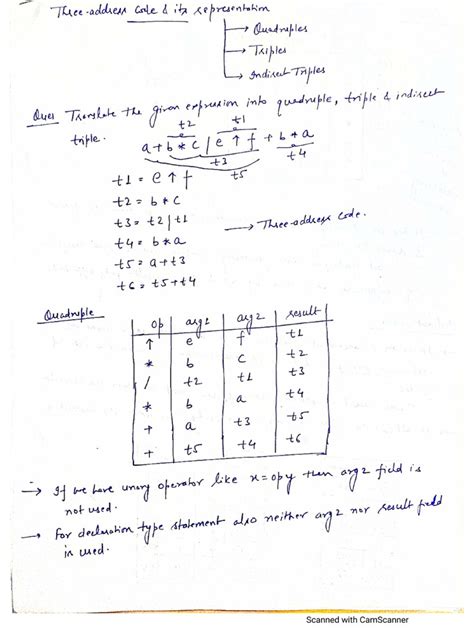 Three-address code & its representation
→ Quadruples
→ Triples
→ Indirect Triples
Ques Translate the given expression into quadruple, triple & indirect
triple.
t2 t1
a + b * c / e ↑ f + b * a
t3 t4
t5
t1 = e ↑ f
t2 = b * c
t3 = t2 / t1
→ Three-address code.
t4 = b * a
t5 = a + t3
t6 = t5 + t4
Quadruple
op arg1 arg2 result
↑ e f t1
* b c t2
/ t2 t1 t3
* b a t4
+ a t3 t5
+ t5 t4 t6
→ If we have unary operator like x = op y then arg2 field is
not used.
→ For declaration type statement also neither arg2 nor result field
is used.
Scanned with CamScanner